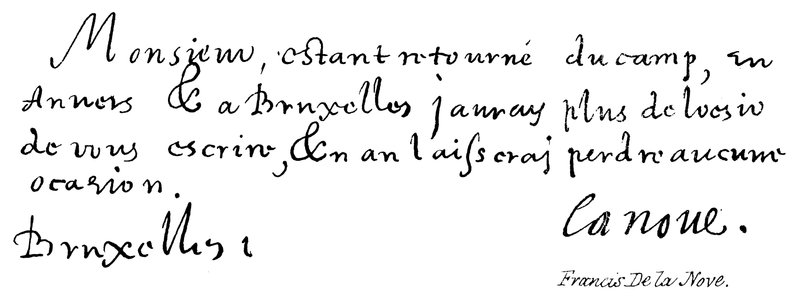 Monsieur, estant retourné du camp, en
Anvers & a Bruxelles jauray plus de loesir
de vous escrire, & n an laisseraj perdre aucune
ocasion.
Bruxelles 1
Lanoue.
Francis De la Nove.